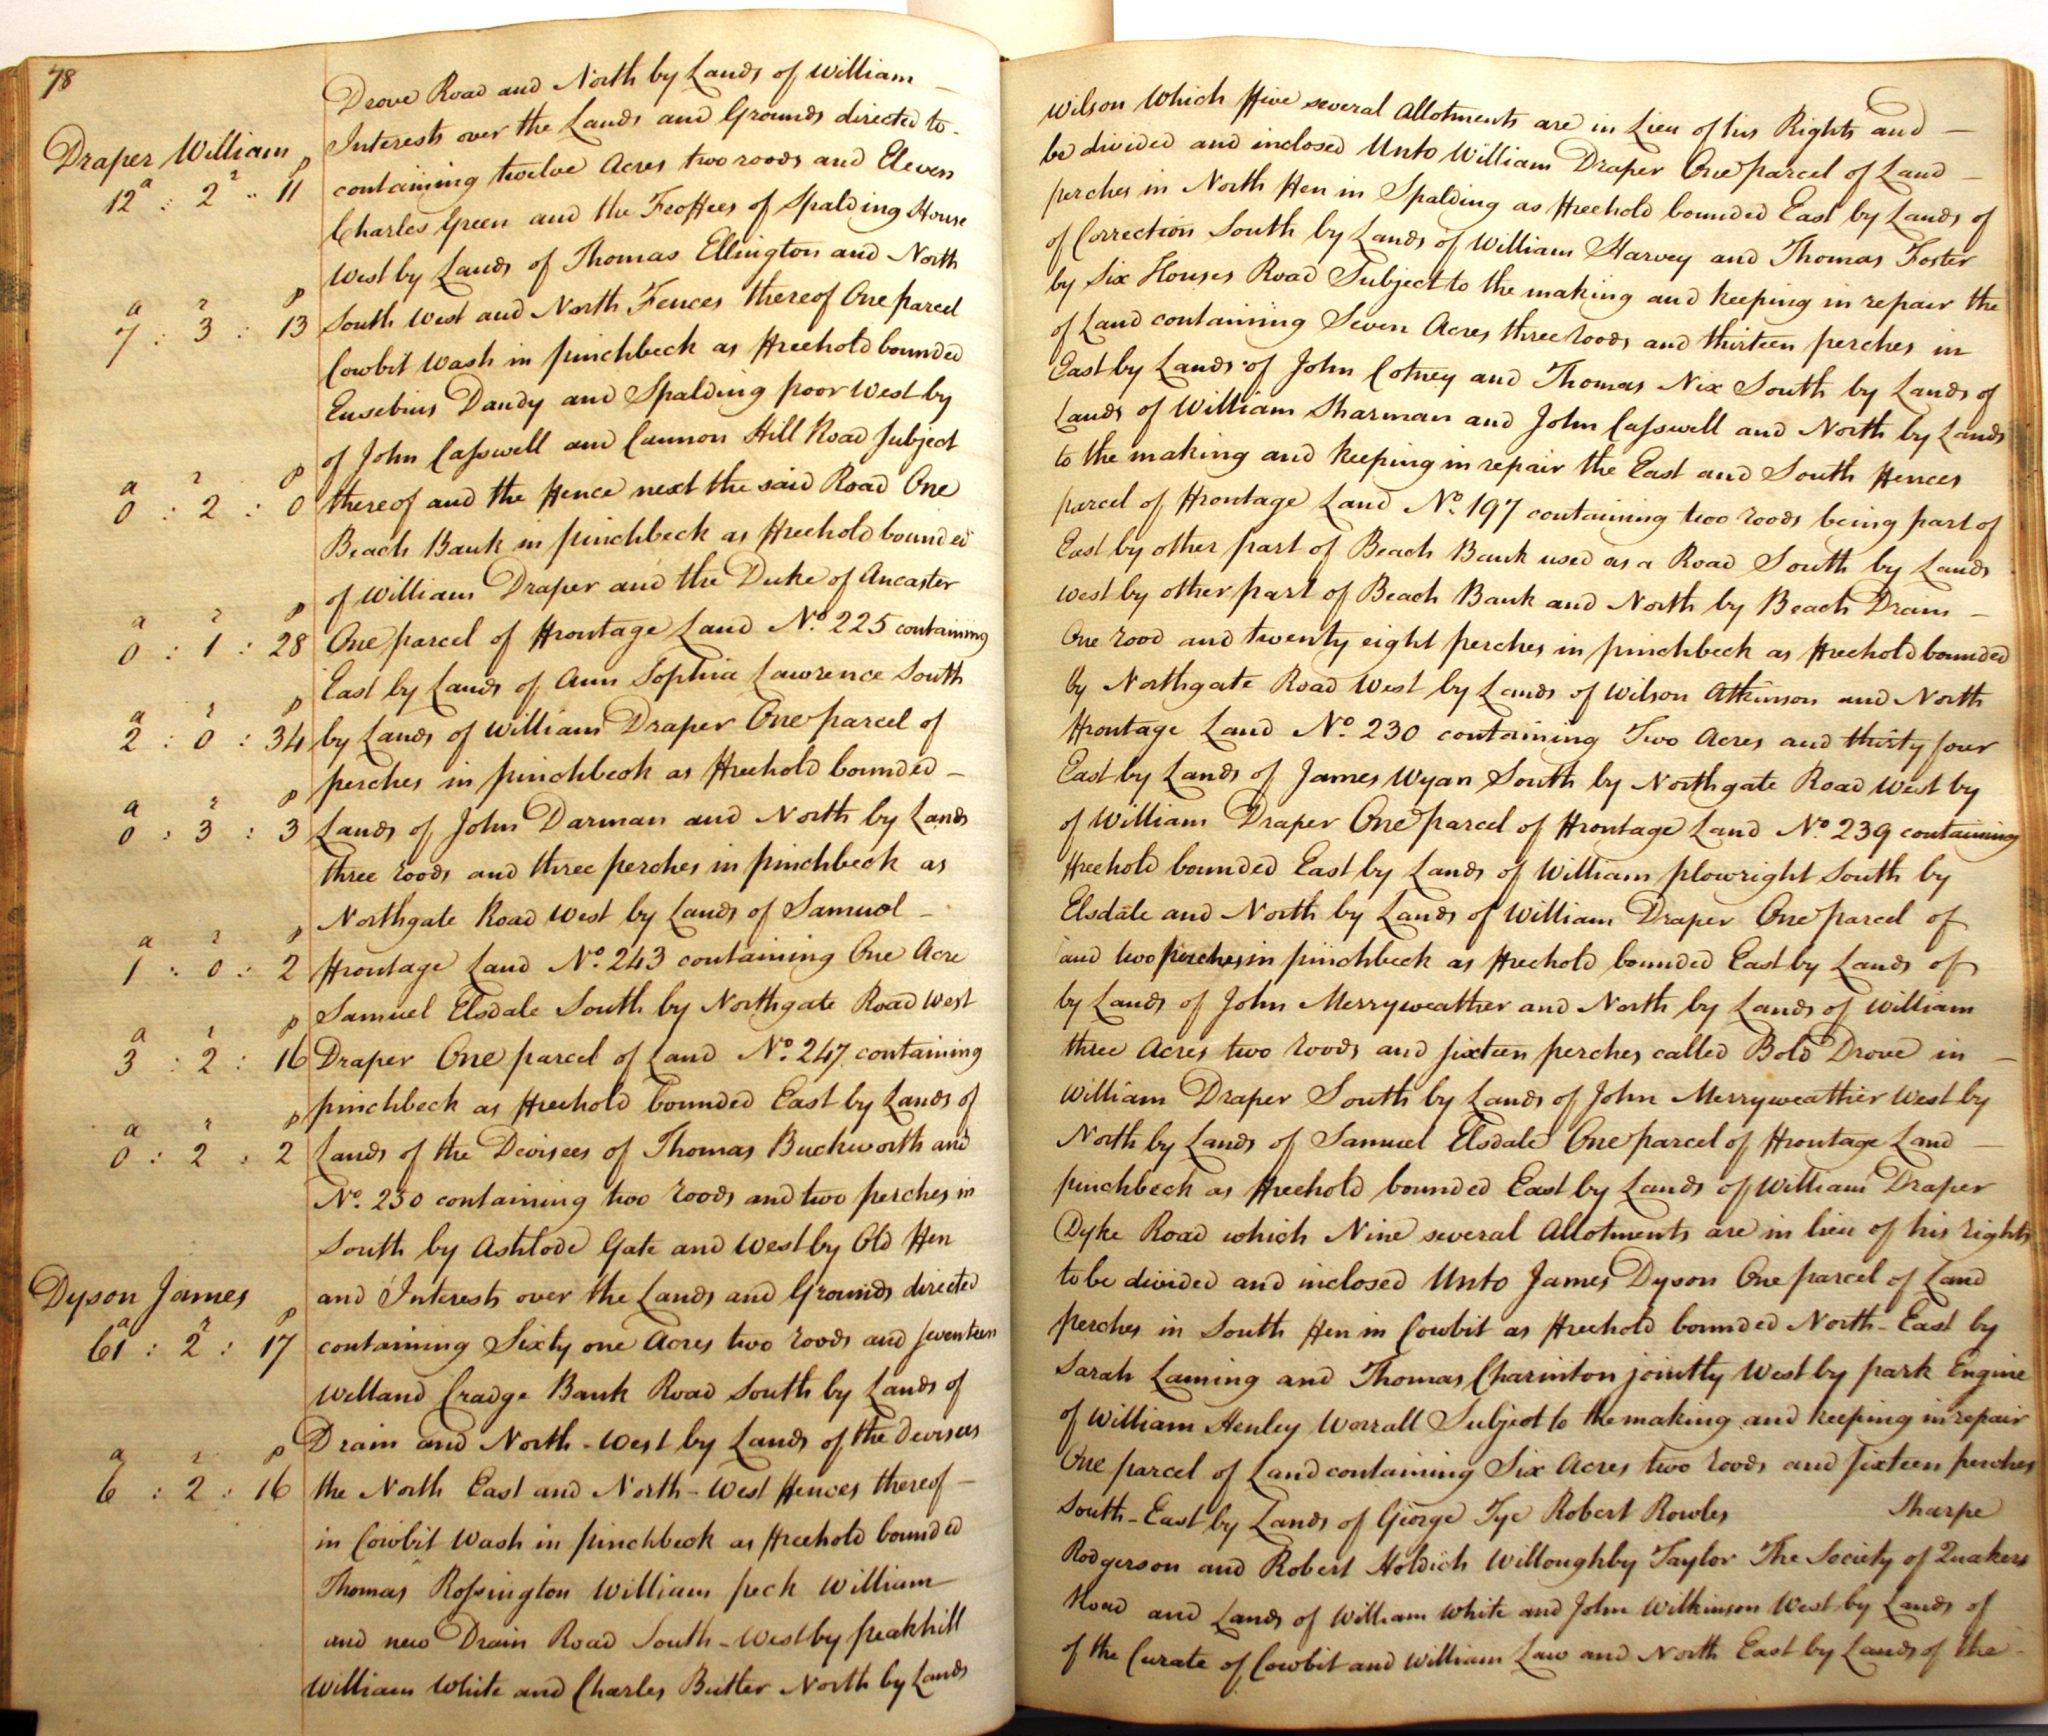 78
Drove Road and North by Lands of William — Wilson Which Five several Allotments are in Lieu of his Rights and —
Draper William
Interests over the Lands and Grounds directed to - be divided and inclosed Unto William Draper One parcel of Land —
12a : 2r : 11p containing twelve Acres two roods and Eleven perches in North Fen in Spalding as Freehold bounded East by Lands of
Charles Green and the Feoffees of Spalding House of Correction South by Lands of William Harvey and Thomas Foster
West by Lands of Thomas Ellington and North by Six Houses Road Subject to the making and keeping in repair the
7a : 3r : 13p South West and North Fences thereof One parcel of Land containing Seven Acres three roods and thirteen perches in
Cowbit Wash in pinchbeck as Freehold bounded East by Lands of John Cotney and Thomas Nix South by Lands of
Eusebius Dandy and Spalding poor West by Lands of William Sharman and John Casswell and North by Lands
of John Casswell and Cannon Hill Road Subject to the making and keeping in repair the East and South Fences
0a : 2r : 0p thereof and the Fence next the said Road One parcel of Frontage Land No. 197 containing two roods being part of
Beach Bank in pinchbeck as Freehold bounded East by other part of Beach Bank used as a Road South by Lands
of William Draper and the Duke of Ancaster West by other part of Beach Bank and North by Beach Drain —
0a : 1r : 28p One parcel of Frontage Land No. 225 containing One rood and twenty eight perches in pinchbeck as Freehold bounded
East by Lands of Ann Sophia Lawrence South by Northgate Road West by Lands of Wilson Atkinson and North
2a : 0r : 34p by Lands of William Draper One parcel of Frontage Land No. 230 containing Two Acres and thirty four
perches in pinchbeck as Freehold bounded — East by Lands of James Wyan South by Northgate Road West by
0a : 3r : 3p Lands of John Darman and North by Lands of William Draper One parcel of Frontage Land No. 239 containing
three roods and three perches in pinchbeck as Freehold bounded East by Lands of William plowright South by
Northgate Road West by Lands of Samuel — Elsdale and North by Lands of William Draper One parcel of
1a : 0r : 2p Frontage Land No. 243 containing One Acre and two perches in pinchbeck as Freehold bounded East by Lands of
Samuel Elsdale South by Northgate Road West by Lands of John Merryweather and North by Lands of William
3a : 2r : 16p Draper One parcel of Land No. 247 containing three Acres two roods and sixteen perches called Bold Drove in —
pinchbeck as Freehold bounded East by Lands of William Draper South by Lands of John Merryweather West by
0a : 2r : 2p Lands of the Devisees of Thomas Buckworth and North by Lands of Samuel Elsdale One parcel of Frontage Land —
No. 250 containing two roods and two perches in pinchbeck as Freehold bounded East by Lands of William Draper
South by Ashlode Gate and West by Old Fen Dyke Road which Nine several Allotments are in lieu of his rights
Dyson James
and Interests over the Lands and Grounds directed to be divided and inclosed Unto James Dyson One parcel of Land
61a : 2r : 17p containing Sixty one Acres two roods and seventeen perches in South Fen in Cowbit as Freehold bounded North-East by
Welland Cradge Bank Road South by Lands of Sarah Laming and Thomas Charinton jointly West by park Engine
Drain and North-West by Lands of the Devisees of William Henley Worrall Subject to the making and keeping in repair
6a : 2r : 16p the North East and North-West Fences thereof — One parcel of Land containing Six Acres two roods and sixteen perches
in Cowbit Wash in pinchbeck as Freehold bounded South-East by Lands of George Tye Robert Rowles Sharpe
Thomas Rossington William peck William Rodgerson and Robert Holdich Willoughby Taylor The Society of Quakers
and new Drain Road South-West by peakhill Road and Lands of William White and John Wilkinson West by Lands of
William White and Charles Butler North by Lands of the Curate of Cowbit and William Law and North East by Lands of the